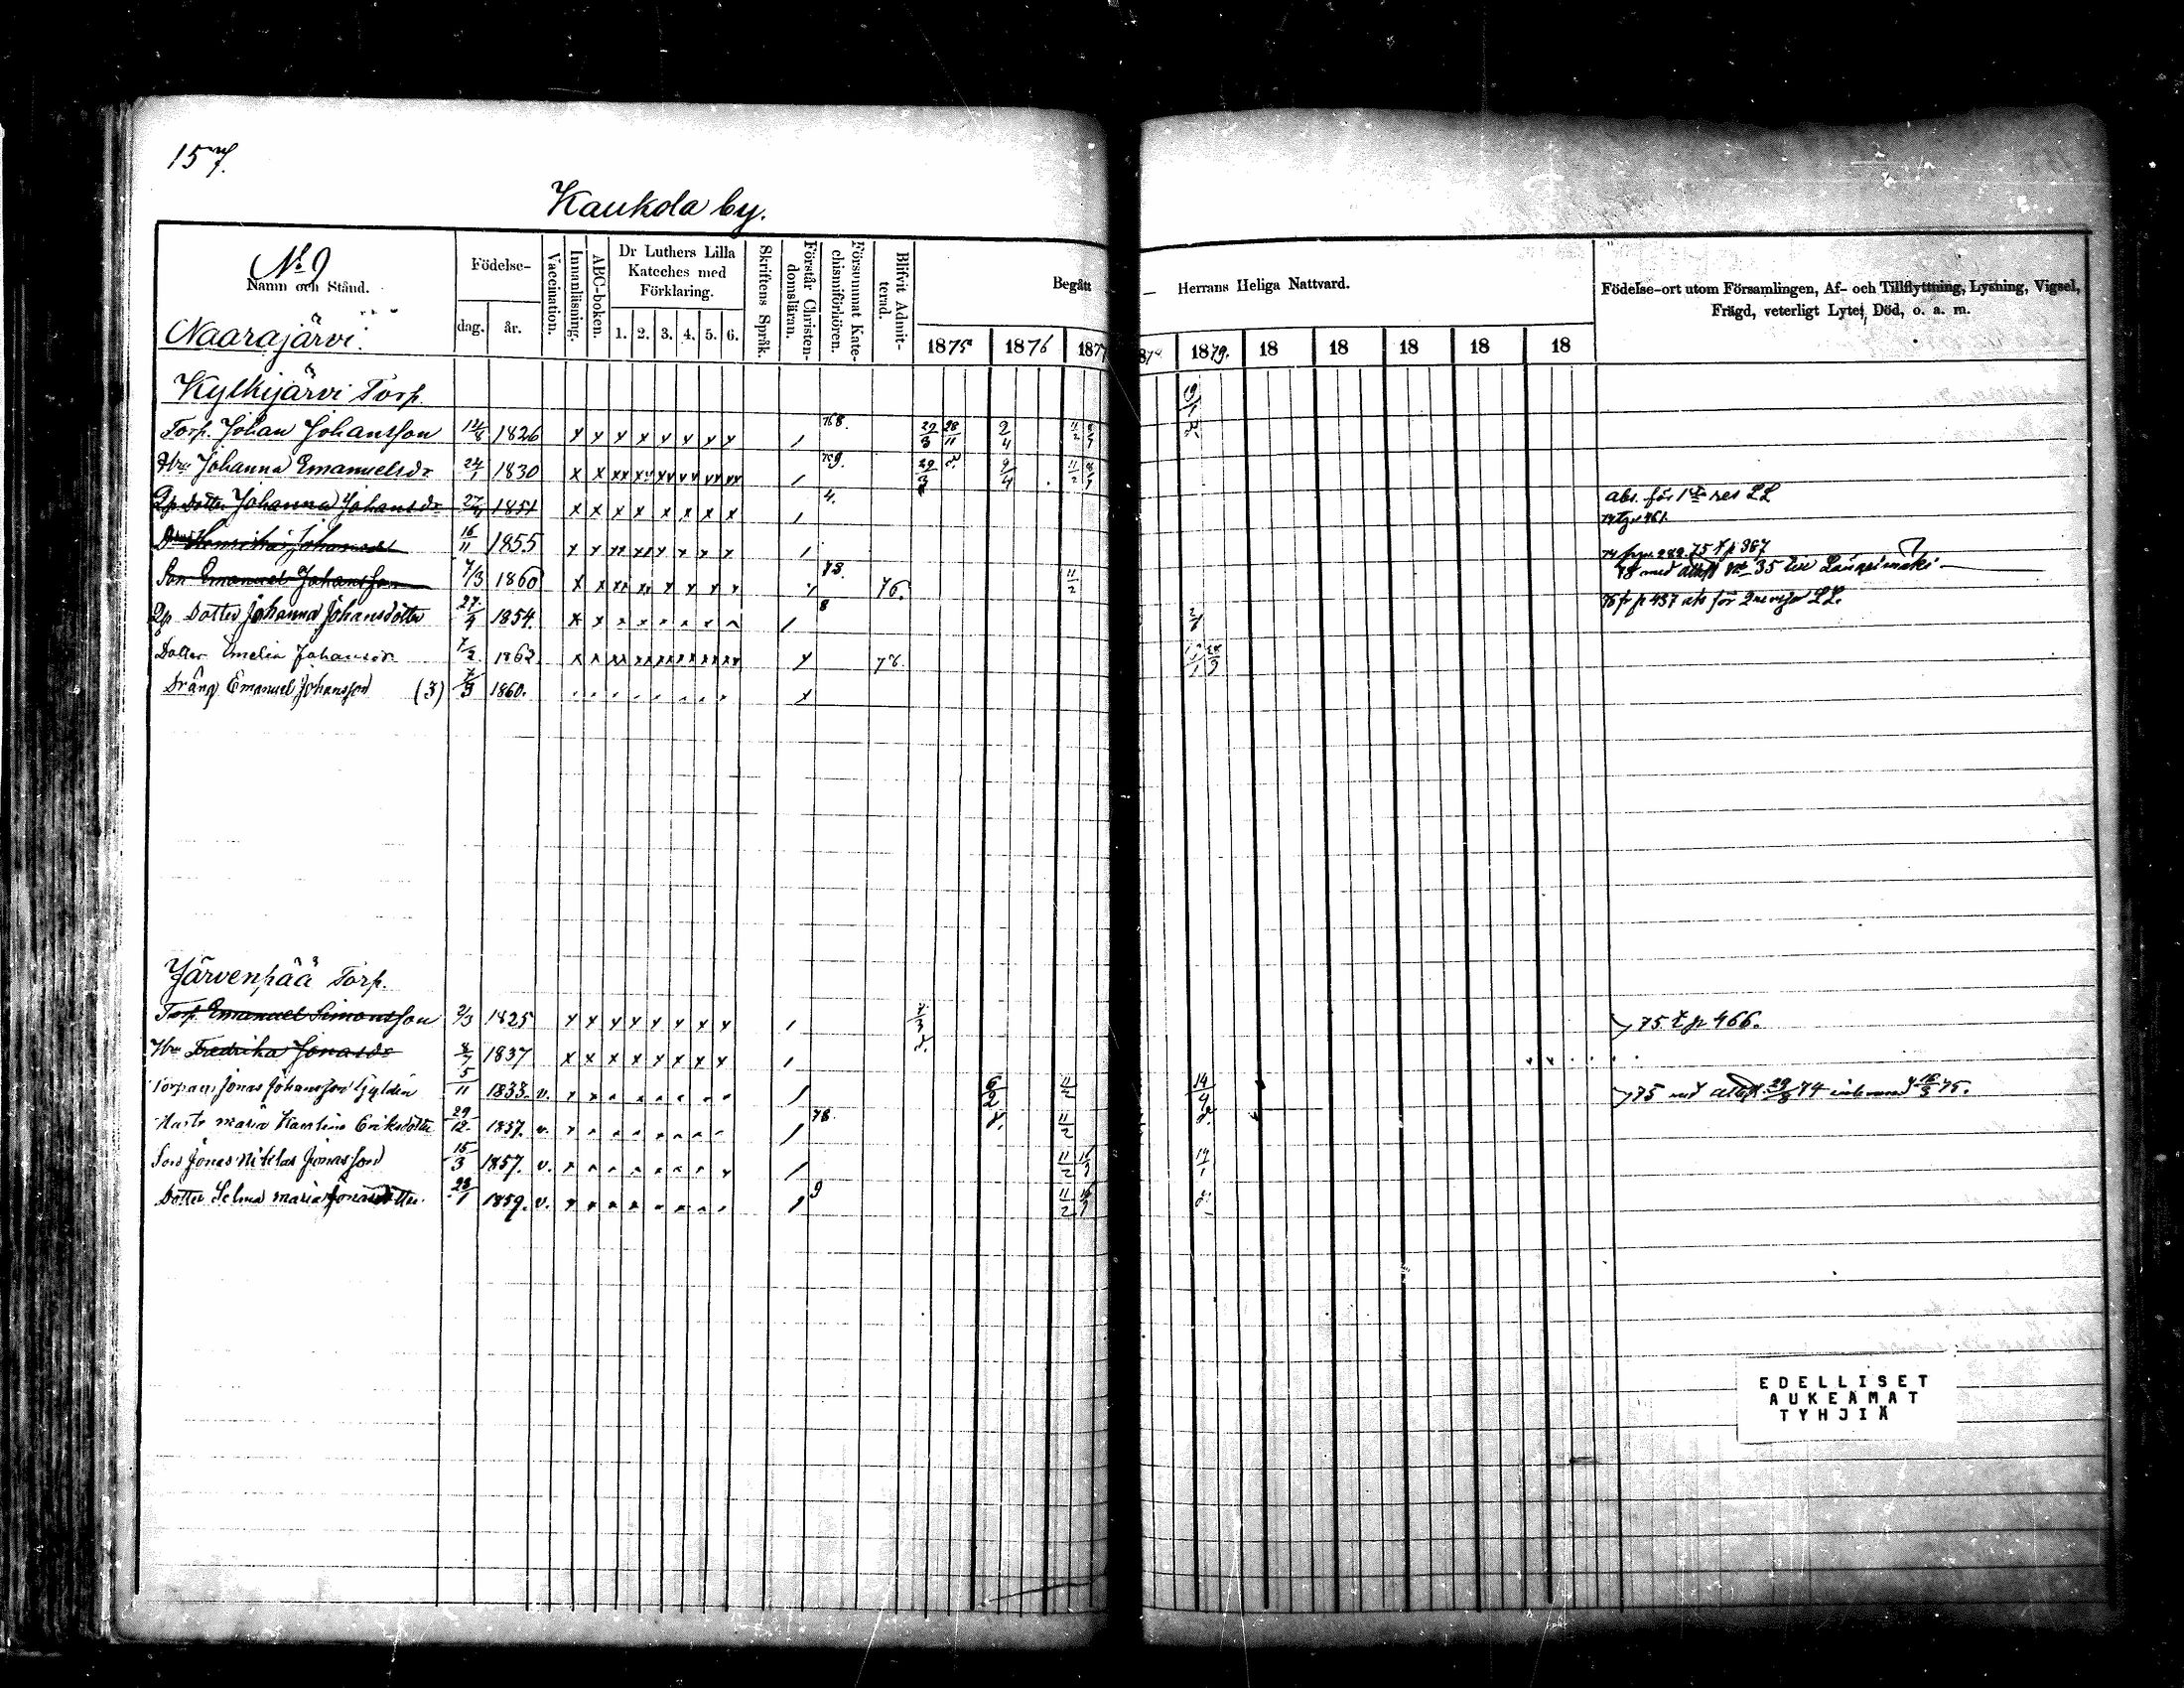 157.
Kaukola by.
No 9
Namn och Stånd.
Naarajärvi.
Födelse-
dag. år.
Vaccination.
Innanläsning.
ABC-boken.
Dr Luthers Lilla
Kateches med
Förklaring.
1. 2. 3. 4. 5. 6.
Skriftens Språk.
Förstår Christen-
domsläran.
Försummat Kate-
chismiförhören.
Blifvit Admit-
terad.
Begått
1875 1876 187
Herrans Heliga Nattvard.
1879. 18 18 18 18 18
Födelse-ort utom Församlingen, Af- och Tillflyttning, Lysning, Vigsel,
Frägd, veterligt Lyte, Död, o. a. m.
Kylkijärvi Torp.
Torp. Johan Johansson 12/8 1826 x x x x x x x x / 768. 29/3 28/11 2/4 11/2
Hru Johanna Emanuelsdr 1830 x x xx xx xx xx xx xx / 29/3 2/4 11/2
Qp Dotter Johanna Johansdr 1851 x x x x x x x x / 4. abs. för 1sta res LL
Dr Henrika Johansdr 16/11 1855 x x xx xx x x x x / 75 t p 387
Son Emanuel Johansson 7/3 1860 x x xx xx x x x x 76. 11/2 78 med attest 35 till Längelmäki
Qp Dotter Johanna Johansdotter 1854. 8 76 fr p 437 abs för 2 LL.
Dotter Emelia Johansdr 7/2 1862 78.
Dräng Emanuel Johansson (3) 7/3 1860.
Järvenpää Torp.
Torp. Emanuel Simonsson 2/3 1825 x x x x x x x x / 75 t p 466.
Hru Fredrika Jonasdr 8/7 1837 x x x x x x x x /
Torparen Jonas Johansson Gyldén 5/11 1833. v. 6/2 11/2 14/4 75 med attest 29/8 74 75.
Hustr Maria Karolina Eriksdotter 29/12 1837. v. 78 11/2
Son Jonas Niklas Jonasson 15/3 1857. v. 11/2
Dotter Selma Maria Jonasdotter. 28/1 1859. v. 9 11/2
EDELLISET
AUKEAMAT
TYHJIÄ